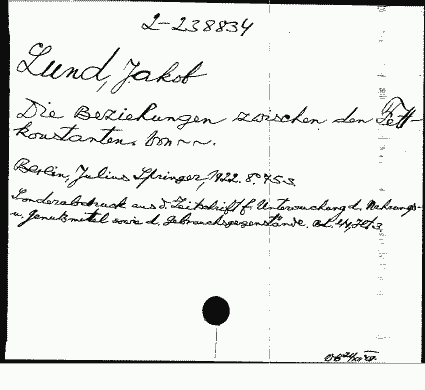 2-238834
Lund, Jakob
Die Beziehungen zwischen den Fett-
konstanten. Von ~~.
Berlin, Julius Springer, 1922. 8°. 75 S.
Sonderabdruck aus d. Zeitschrift f. Untersuchung d. Nahrungs-
u. Genußmittel sowie d. Gebrauchsgegenstände. Bd. 44, H. 3.